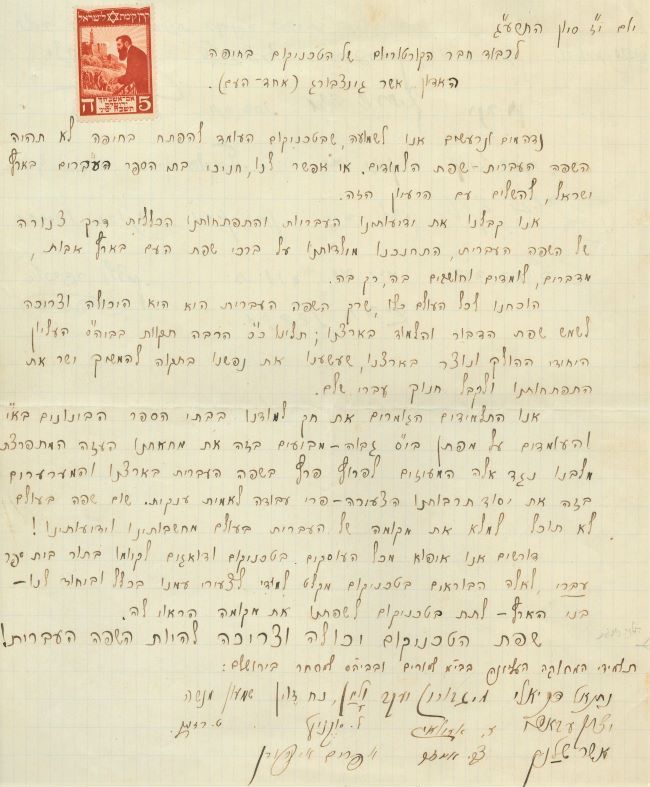 יום י"ז סיון התשע"ג
לכבוד חבר הקורטוריום של הטכניקום בחיפה
האדון אשר גינצבורג (אחד-העם).
קרן קימת לישראל
ה 5
נדהמים ונרעשים אנו לשמועה, שבטכניקום העומד להפתח בחיפה לא תהיה
השפה העברית-שפת הלמודים. אי אפשר לנו, חניכי בתי הספר העברים בארץ
ישראל, להשלים עם הרעיון הזה.
אנו קבלנו את ידיעותנו העבריות והתפתחותנו הכללית דרך צנורה
של השפה העברית, התחנכנו מולדותנו על ברכי שפת העם בארץ אבות,
מדברים, לומדים וחושבים בה, רק בה.
הוכחנו לכל העולם כלו, שרק השפה העברית היא היא היכולה וצריכה
לשמש שפת הדבור והלמוד בארצנו; תלינו כ"כ הרבה תקוות בביה"ס העליון
היחודי ההולך ונוצר בארצנו, שעשענו את נפשנו בתקוה להמשיך ישר את
התפתחותנו ולקבל חנוך עברי שלם.
אנו התלמידים הגומרים את חק למודנו בבתי הספר הבינונים בא"י
והעומדים על מפתן בי"ס גבוה-מביעים בזה את מחאתנו העזה המתפרצת
מלבנו נגד אלה המעיזים לפרוץ פרץ בשפה העברית בארצנו והמערערים
בזה את יסוד תרבותנו הצעירה-פרי עבודה לאמית ענקית. שום שפה בעולם
לא תוכל למלא את מקומה של העברית בעולם מחשבותינו וידיעותינו!
דורשים אנו איפוא מכל העוסקים בטכניקום ודואגים לקיומו בתור בית ספר
עברי, לאלה הבוראים בטכניקום מקלט למדי לצעירי עמנו בכלל וביחוד לנו-
בני הארץ-לתת בטכניקום לשפתנו את מקומה הראוי לה.
שפת הטכניקום יכולה וצריכה להיות השפה העברית!
תלמידי המחלקה העליונה בביה"מ למורים ובביה"ס למסחר בירושלם:
נח שמעון מנשה
אפרים